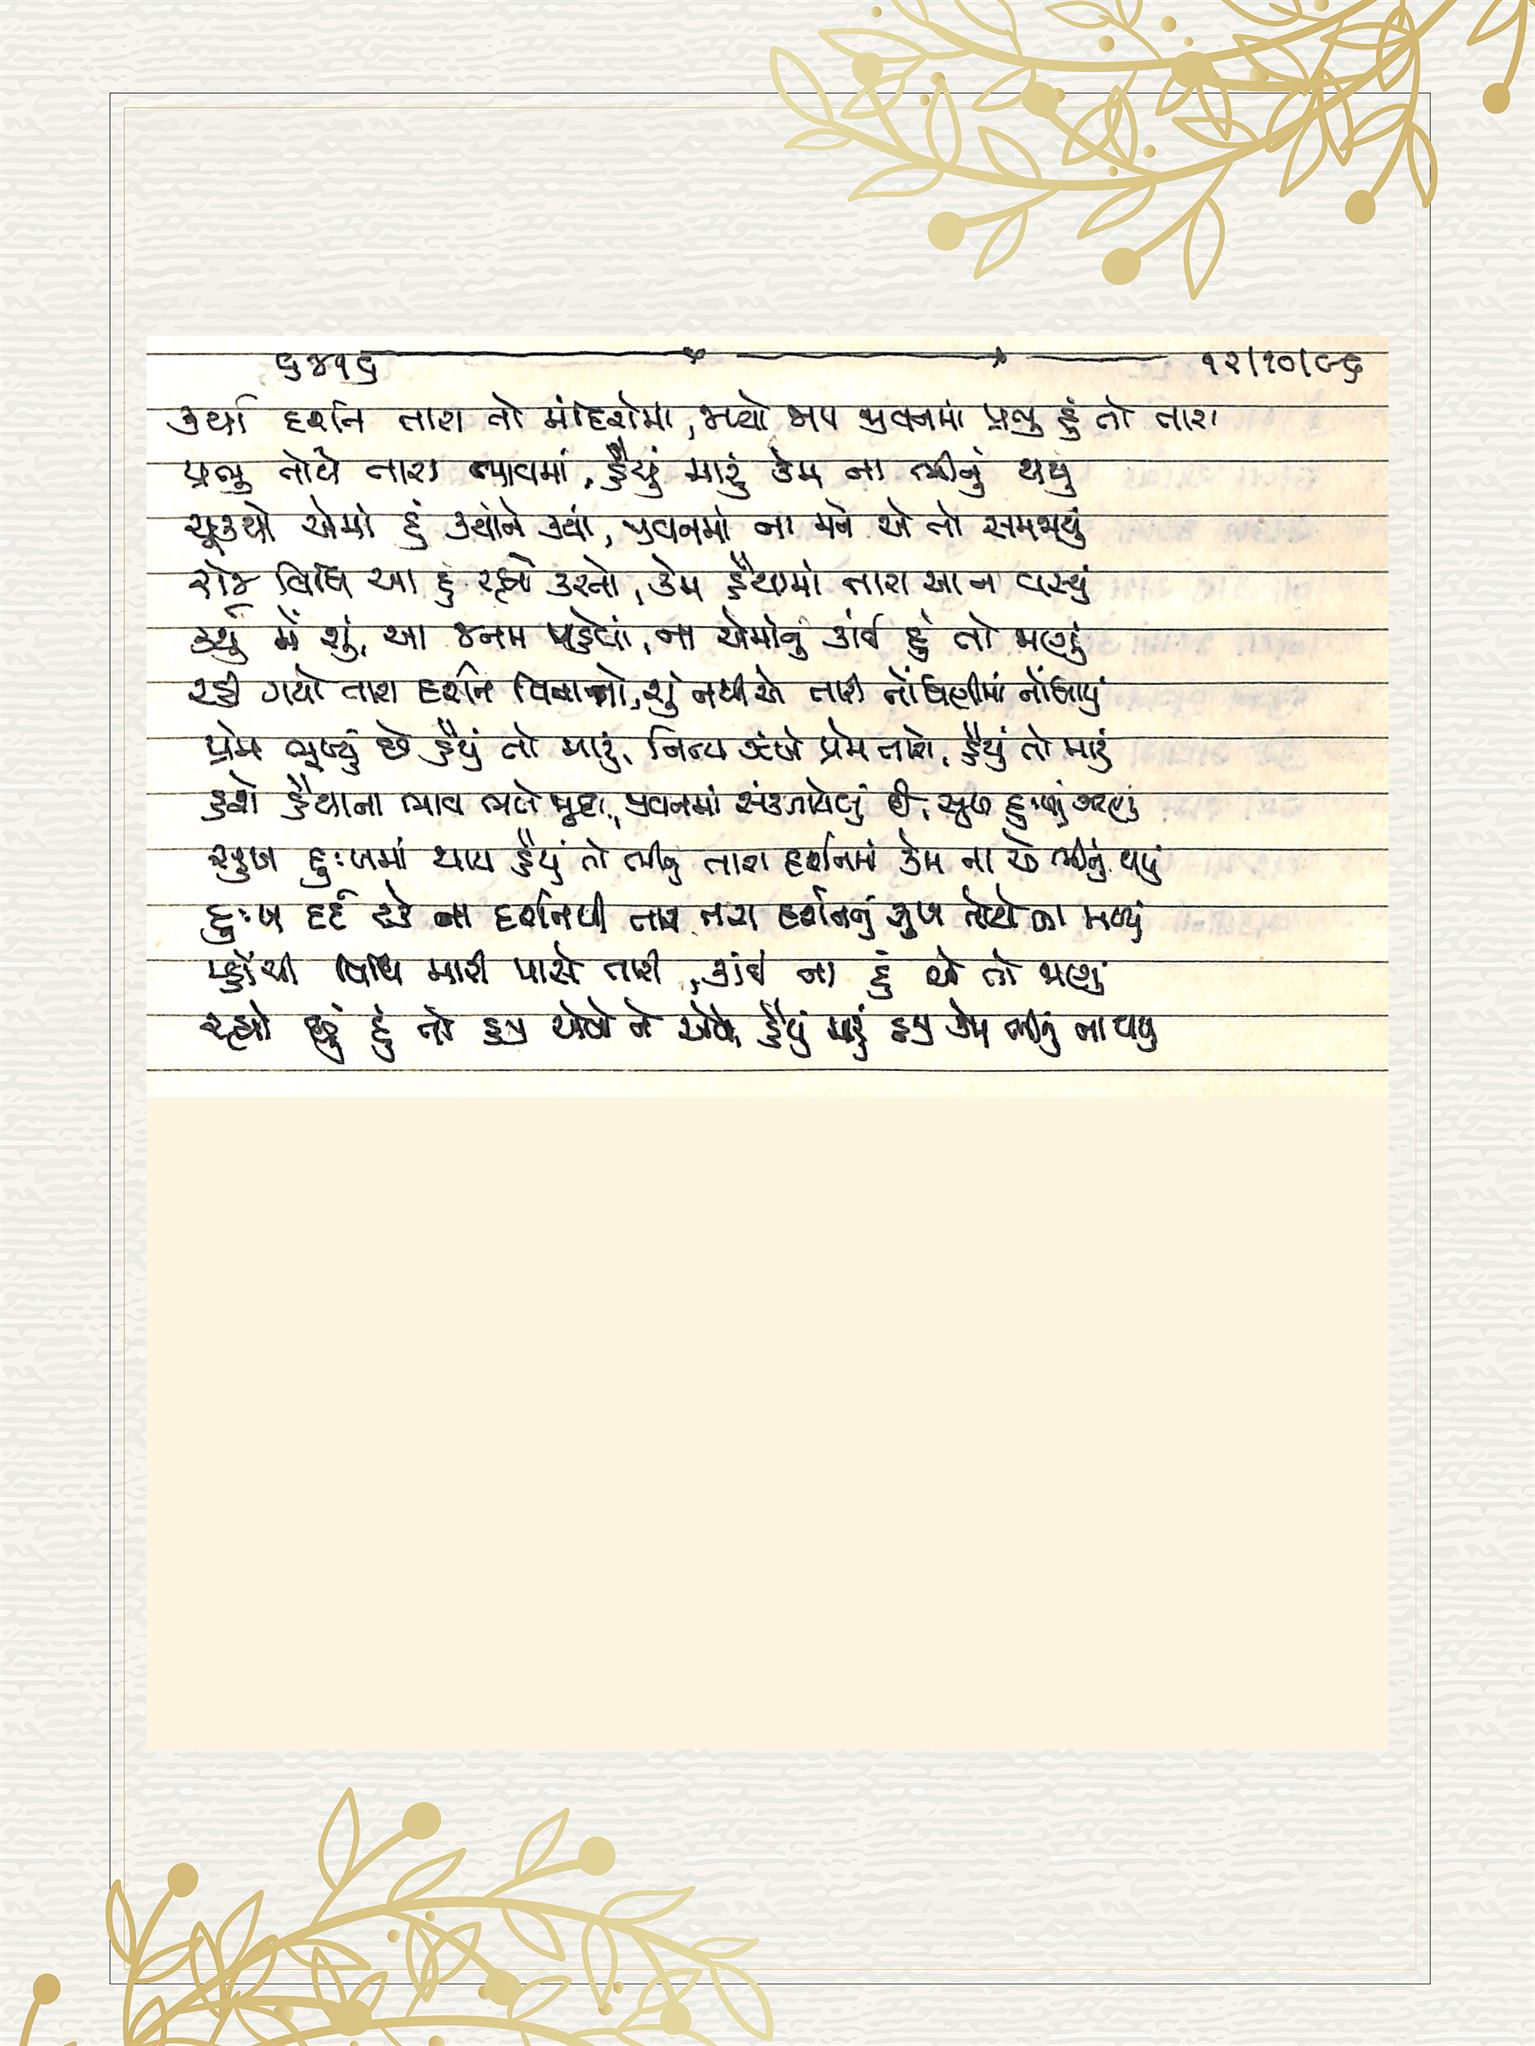 ૬૪૧૬ ૧૨/૧૦/૯૬
કર્યા દર્શન તારા તો મંદિરોમાં, જપ્યો જાપ જીવનમાં પ્રભુ હું તો તારા
પ્રભુ તોયે તારા ભાવમાં, હૈયું મારું કેમ ના ભીનું થયું
ચૂકયો એમાં હું કયાંને કયાં, જીવનમાં ના મને એ તો સમજાયું
રોજ વિધિ આ હું રહ્યો કરતો, કેમ હૈયામાં તારા આ ન વસ્યું
કર્યું મેં શું, આ જનમ પહેલાં, ના એમાંનું કાંઈ હું તો જાણું
રહી ગયો તારા દર્શન વિનાનો, શું નથી એ તારી નોંધણીમાં નોંધાયું
પ્રેમ ભૂખ્યું છે હૈયું તો મારું, નિત્ય ઝંખે પ્રેમ તારો, હૈયું તો મારું
હશે હૈયાના ભાવ ભલે જુદા, જીવનમાં સંકળાયેલું છે, સુખ દુઃખનું ઝરણું
સુખ દુઃખમાં થાય હૈયું તો ભીનું તારા દર્શનમાં કેમ ના એ ભીનું થયું
દુઃખ દર્દ ના દર્શનથી તારા, તારા દર્શનનું સુખ તોયે ના મળ્યું
પહોંચી વિધિ મારી પાસે તારી, કાંઈ ના હું એ તો જાણું
રહ્યો છું હું તો હજી એવો ને એવો, હૈયું મારું હજી કેમ ભીનું ના થયું